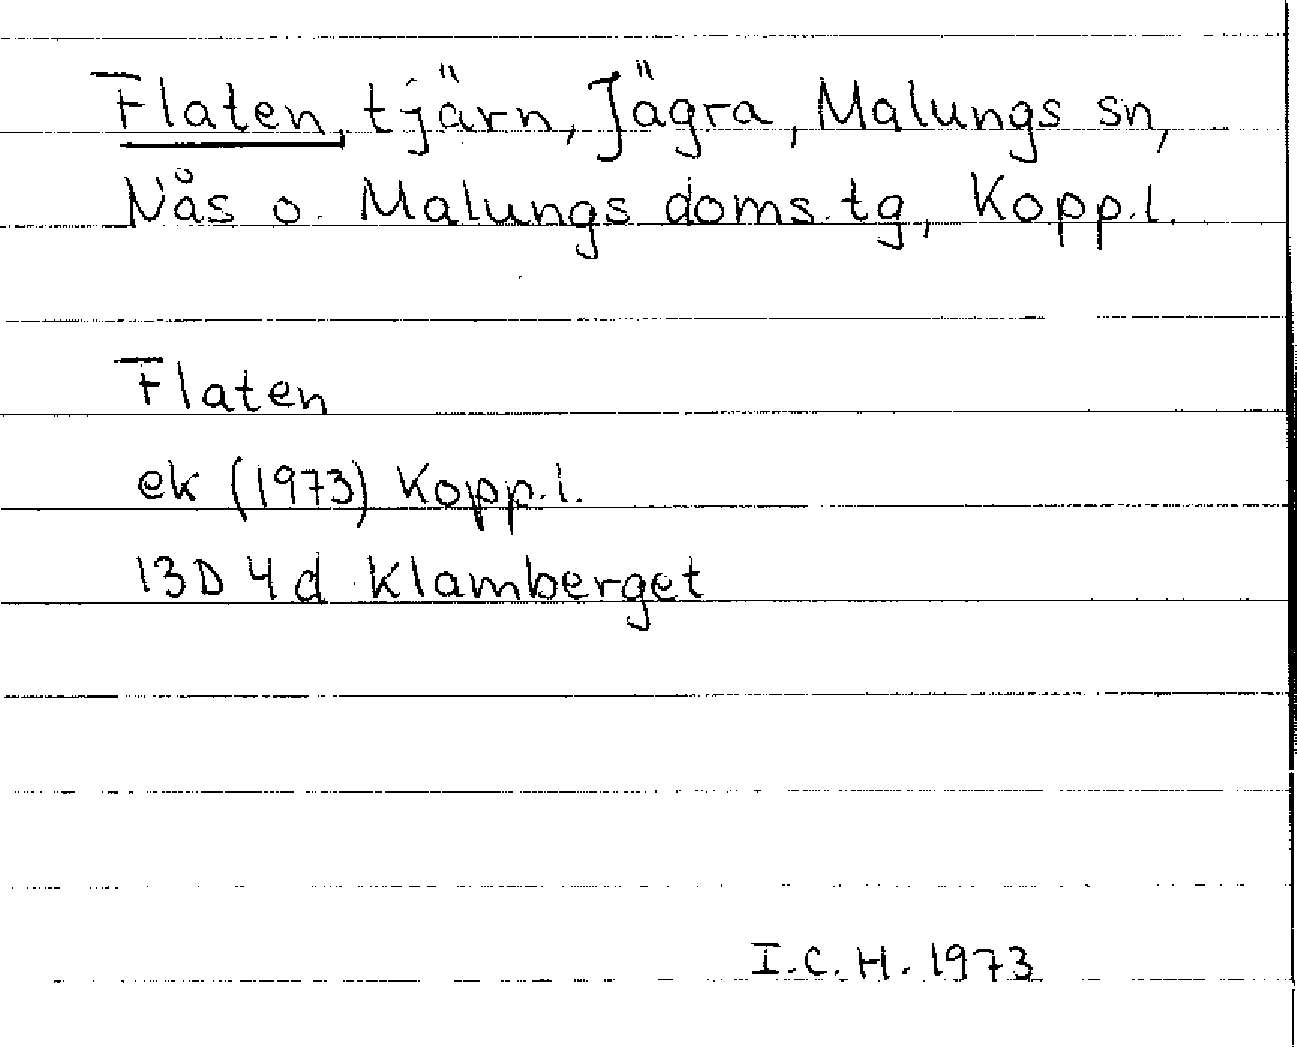 Flaten, tjärn, Jägra, Malungs sn,
Nås o. Malungs doms.tg, Kopp.l.
Flaten
ek (1973) Kopp.l.
13D 4d Klamberget
I.C.H. 1973